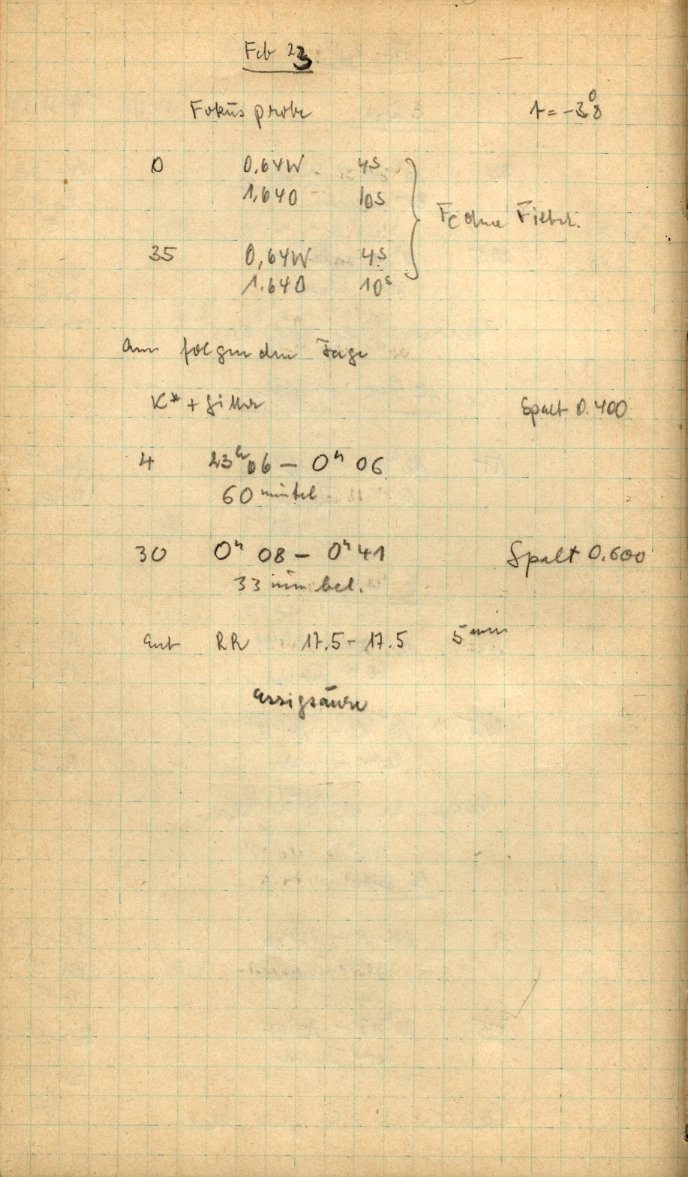 Feb 23
Fokusprobe t = -3°8
0 0,64W 4s
1,640 10s
Fe ohne Filter.
35 0,64W 4s
1.640 10s
am folgenden Tage
K* + Filter Spalt 0.400
4 23h06 – 0h 06
60 min bel.
30 0h 08 – 0h 41 Spalt 0.600
33 min bel.
Ent RR 17.5 – 17.5 5 min
Essigsäure